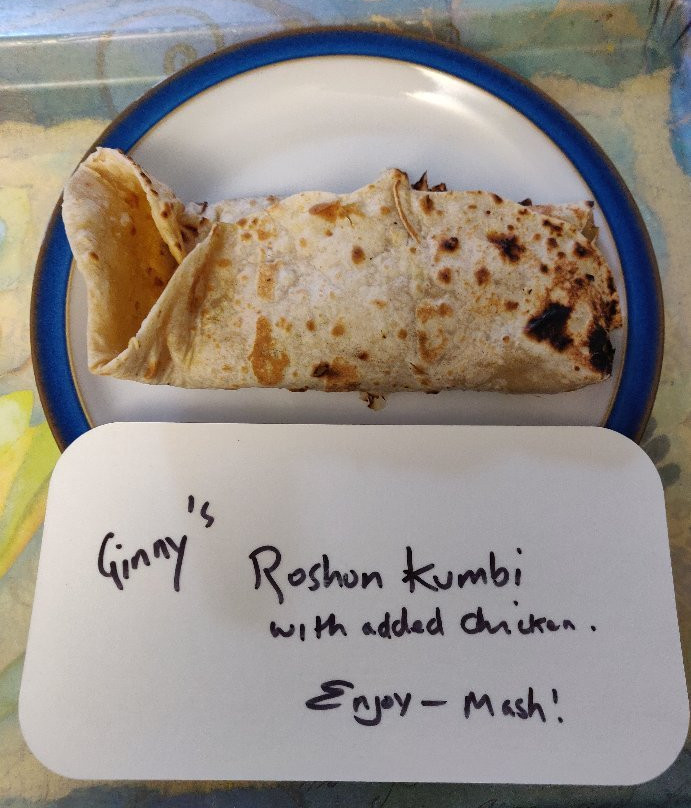 Ginny's
Roshun Kumbi
with added chicken.
Enjoy – Mash!